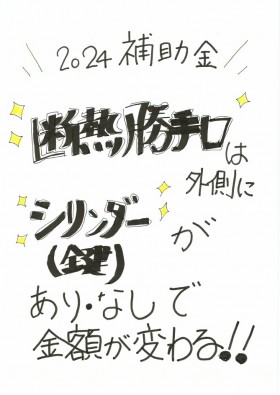 2024 補助金
断熱勝手口は
外側に
シリンダーが
(鍵)
あり・なしで
金額が変わる!!